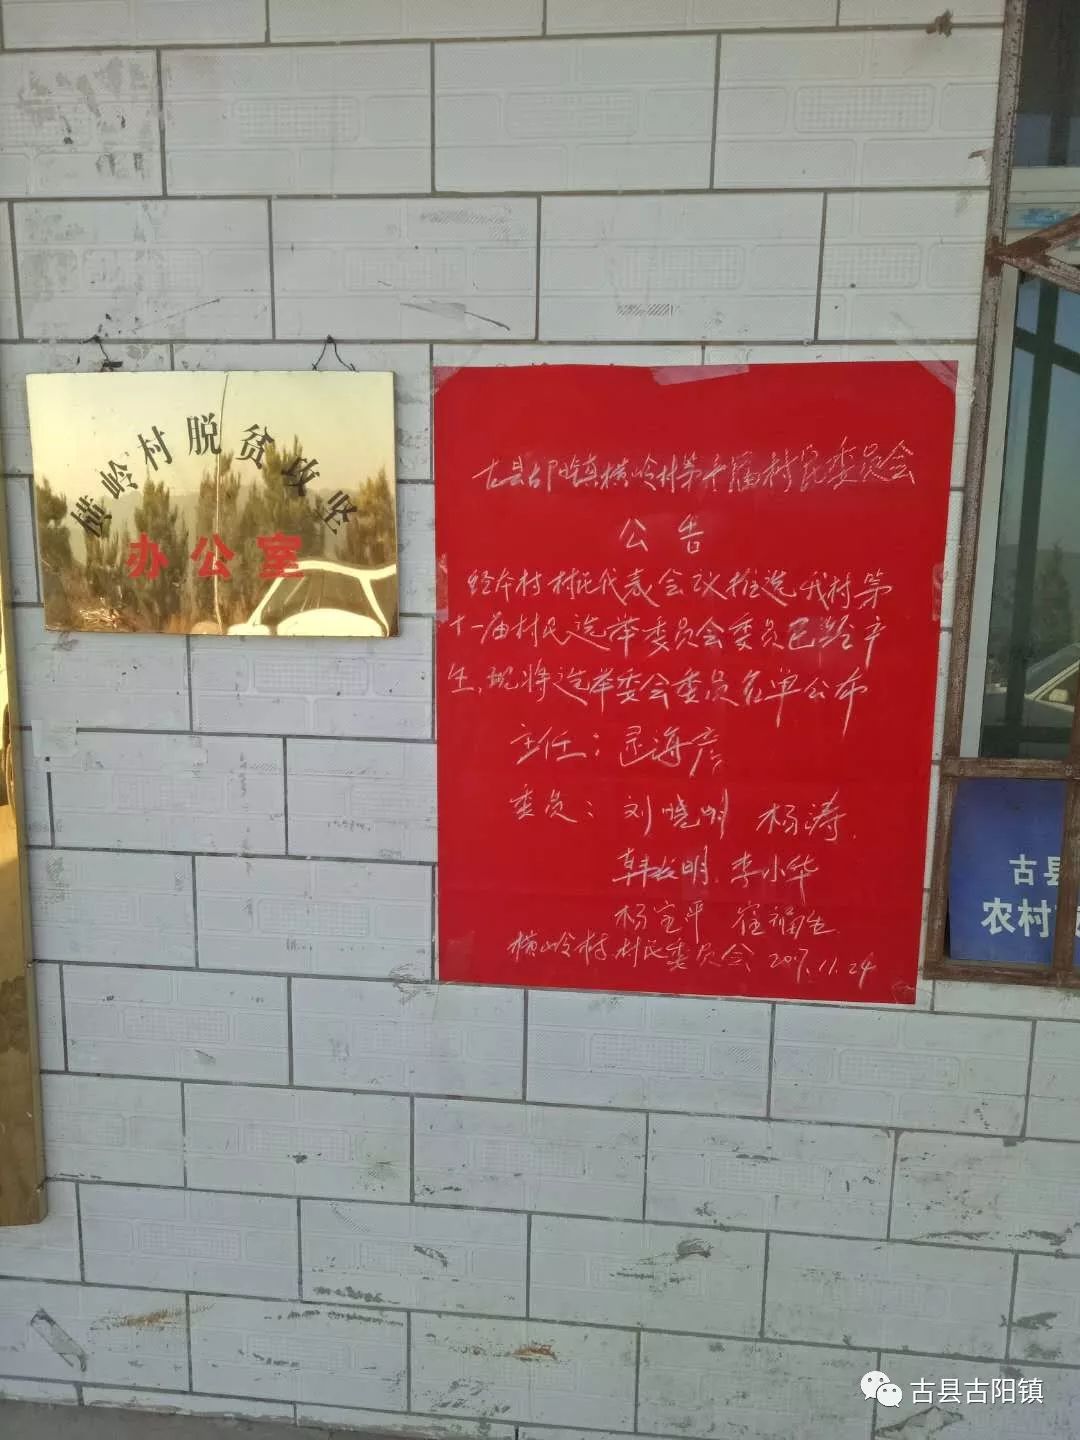 横岭村脱贫攻坚
办公室
古县古阳镇横岭村第十届村民委员会
公告
经本村村民代表会议推选我村第
十一届村民选举委员会委员已经产
生,现将选举委会委员名单公布
主任:海彦
委员:刘晓明 杨涛
韩长明 李小华
杨宝平 崔福生
横岭村村民委员会 2017.11.24
古县
农村
古县古阳镇